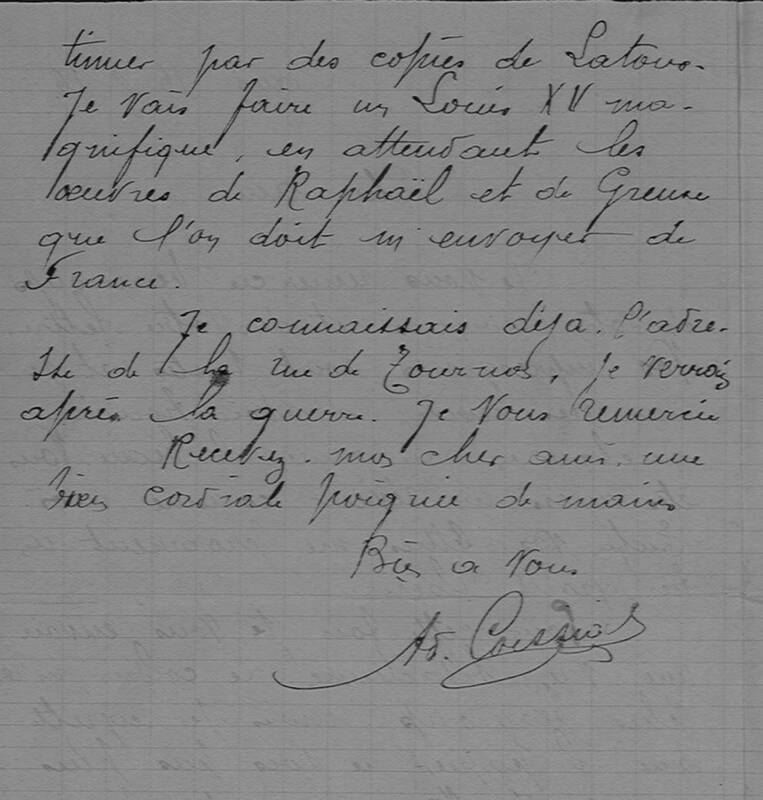 tinuer par des copies de Latour.
Je vais faire un Louis XV ma-
gnifique, en attendant les
œuvres de Raphaël et de Greuse
que l'on doit m'envoyer de
France.
Je connaissais déja l'adre-
sse de la rue de Tournon, je verrais
après la guerre. Je vous remercie
Recevez mon cher ami, une
bien cordiale poignée de mains
Bien a vous
Ad.